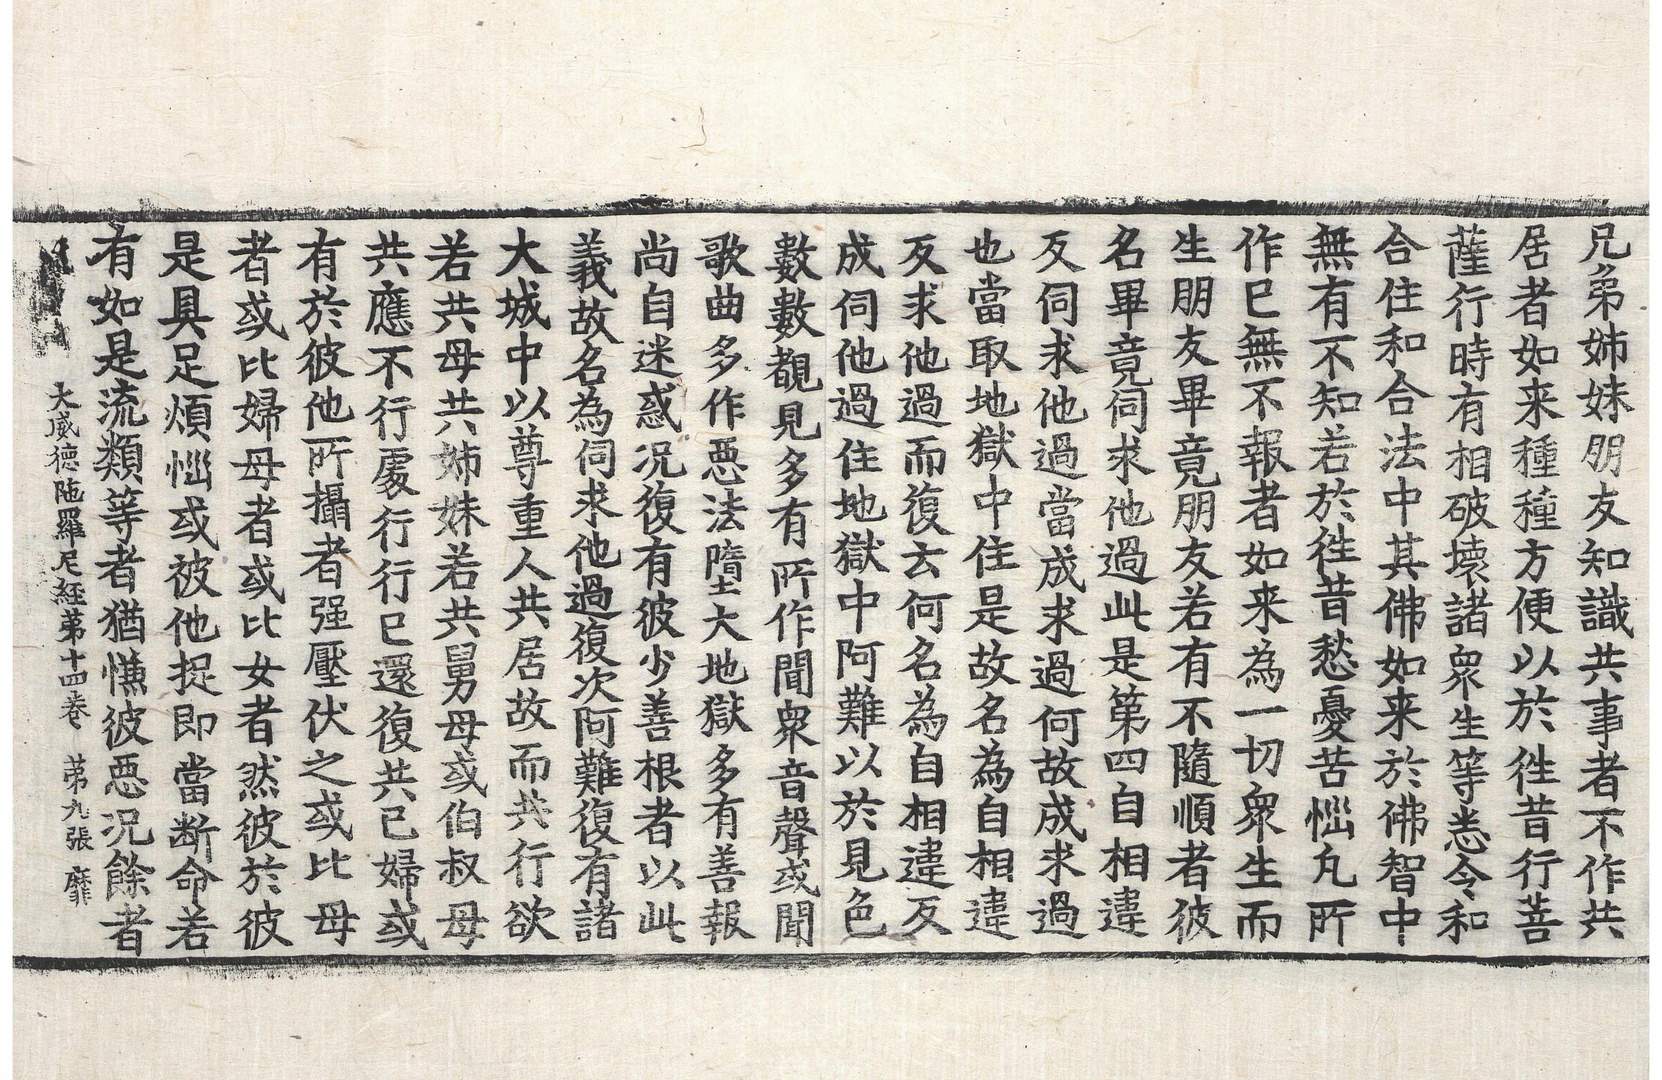 兄弟姉妹朋友知識共事者不作共
居者如来種種方便以於徃昔行菩
薩行時有相破壞諸衆生等悉令和
合住和合法中其佛如来於佛智中
無有不知若於徃昔愁憂苦惱凡所
作巳無不報者如来為一切衆生而
生朋友畢竟朋友若有不隨順者彼
名畢竟伺求他過此是第四自相違
反伺求他過當成求過何故成求過
也當取地獄中住是故名為自相違
反求他過而復云何名為自相違反
成伺他過住地獄中阿難以於見色
數數覩見多有所作聞衆音聲或聞
歌曲多作惡法墮大地獄多有善報
尚自迷惑况復有彼少善根者以此
義故名為伺求他過復次阿難復有諸
大城中以尊重人共居故而共行欲
若共母共姉妹若共舅母或伯叔母
共應不行處行行巳還復共己婦或
有於彼他所攝者强壓伏之或比母
者或比婦母者或比女者然彼於彼
是具足煩惱或被他捉即當断命若
有如是流類等者猶慊彼惡况餘者
大威德陁羅尼經第十四卷 第九張 靡